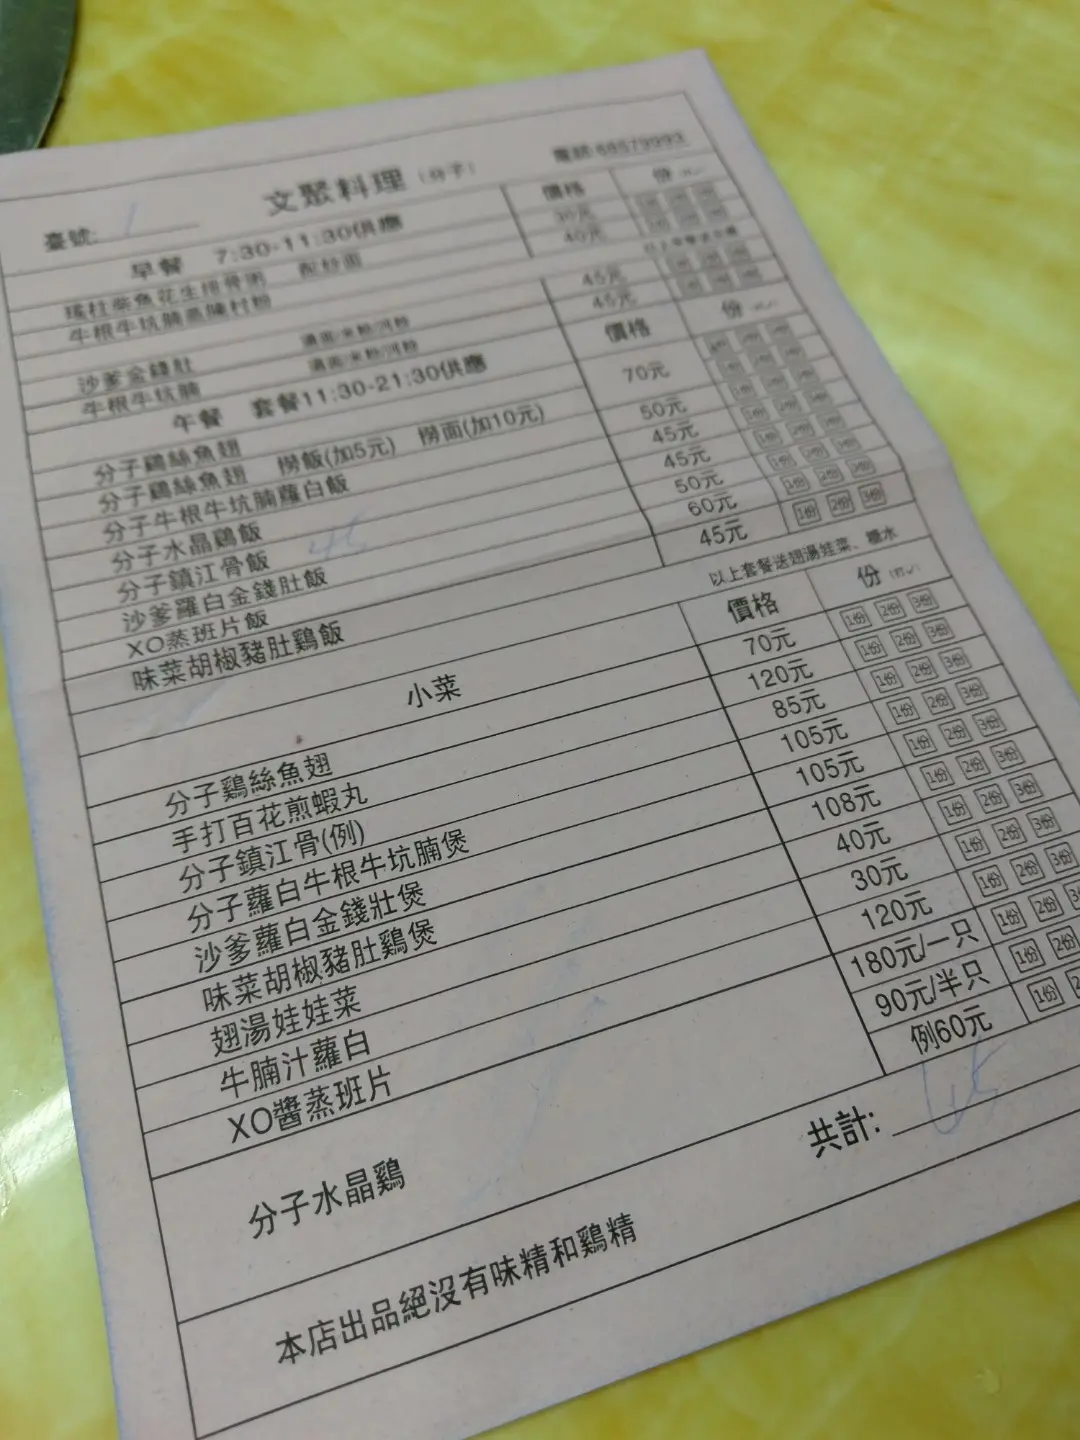 文聚料理 (分子) 電話:66579993
臺號: 1
早餐 7:30-11:30供應 價格 份
瑤柱柴魚花生排骨粥 配炒面 30元 1份 2份 3份
牛根牛坑腩蒸陳村粉 40元 1份 2份 3份
沙爹金錢肚 湯面/米粉/河粉 45元 1份 2份 3份
牛根牛坑腩 湯面/米粉/河粉 45元 1份 2份 3份
午餐 套餐11:30-21:30供應 價格 份
分子鷄絲魚翅 70元 1份 2份 3份
分子鷄絲魚翅 撈飯(加5元) 撈面(加10元)
分子牛根牛坑腩蘿白飯 50元 1份 2份 3份
分子水晶鷄飯 45元 1份 2份 3份
分子鎮江骨飯 45元 1份 2份 3份
沙爹羅白金錢肚飯 50元 1份 2份 3份
XO蒸班片飯 60元 1份 2份 3份
味菜胡椒豬肚鷄飯 45元 1份 2份 3份
以上套餐送翅湯娃菜、糖水
小菜 價格 份 (打✓)
分子鷄絲魚翅 70元 1份 2份 3份
手打百花煎蝦丸 120元 1份 2份 3份
分子鎮江骨(例) 85元 1份 2份 3份
分子蘿白牛根牛坑腩煲 105元 1份 2份 3份
沙爹蘿白金錢壯煲 105元 1份 2份 3份
味菜胡椒豬肚鷄煲 108元 1份 2份 3份
翅湯娃娃菜 40元 1份 2份 3份
牛腩汁蘿白 30元 1份 2份 3份
XO醬蒸班片 120元 1份 2份 3份
分子水晶鷄 180元/一只 1份 2份 3
90元/半只 1份 2份
例60元 1份 2
共計:
本店出品絕沒有味精和鷄精